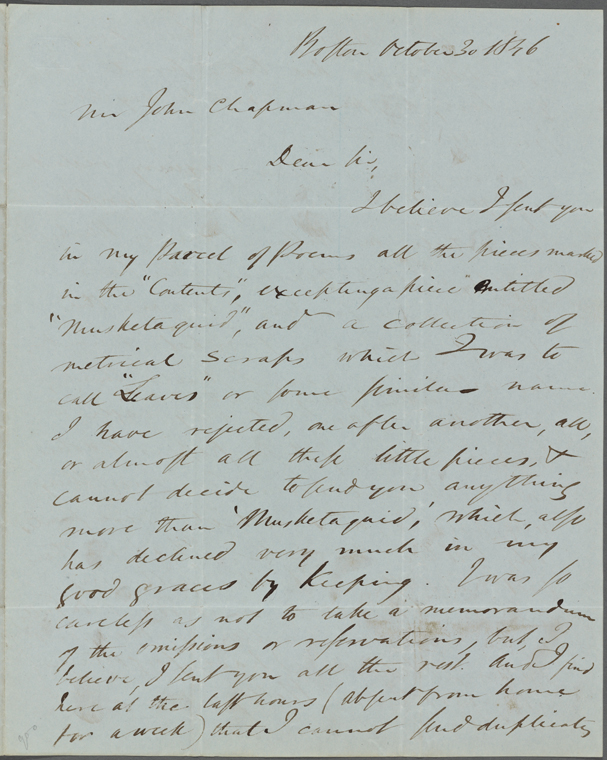 Boston October 30 1846
Mr John Chapman
Dear Sir,
I believe I sent you
in my Parcel of Poems all the pieces marked
in the "Contents", excepting a piece entitled
"Musketaquid", and a collection of
metrical scraps which I was to
call "Leaves" or some similar name.
I have rejected, one after another, all,
or almost all these little pieces, &
cannot decide to send you anything
more than 'Musketaquid', which, also
has declined very much in my
good graces by keeping. I was so
careless as not to take a memorandum
of the omissions or reservations, but, I
believe, I sent you all the rest. And I find
here at the last hours (absent from home
for a week) that I cannot send duplicates